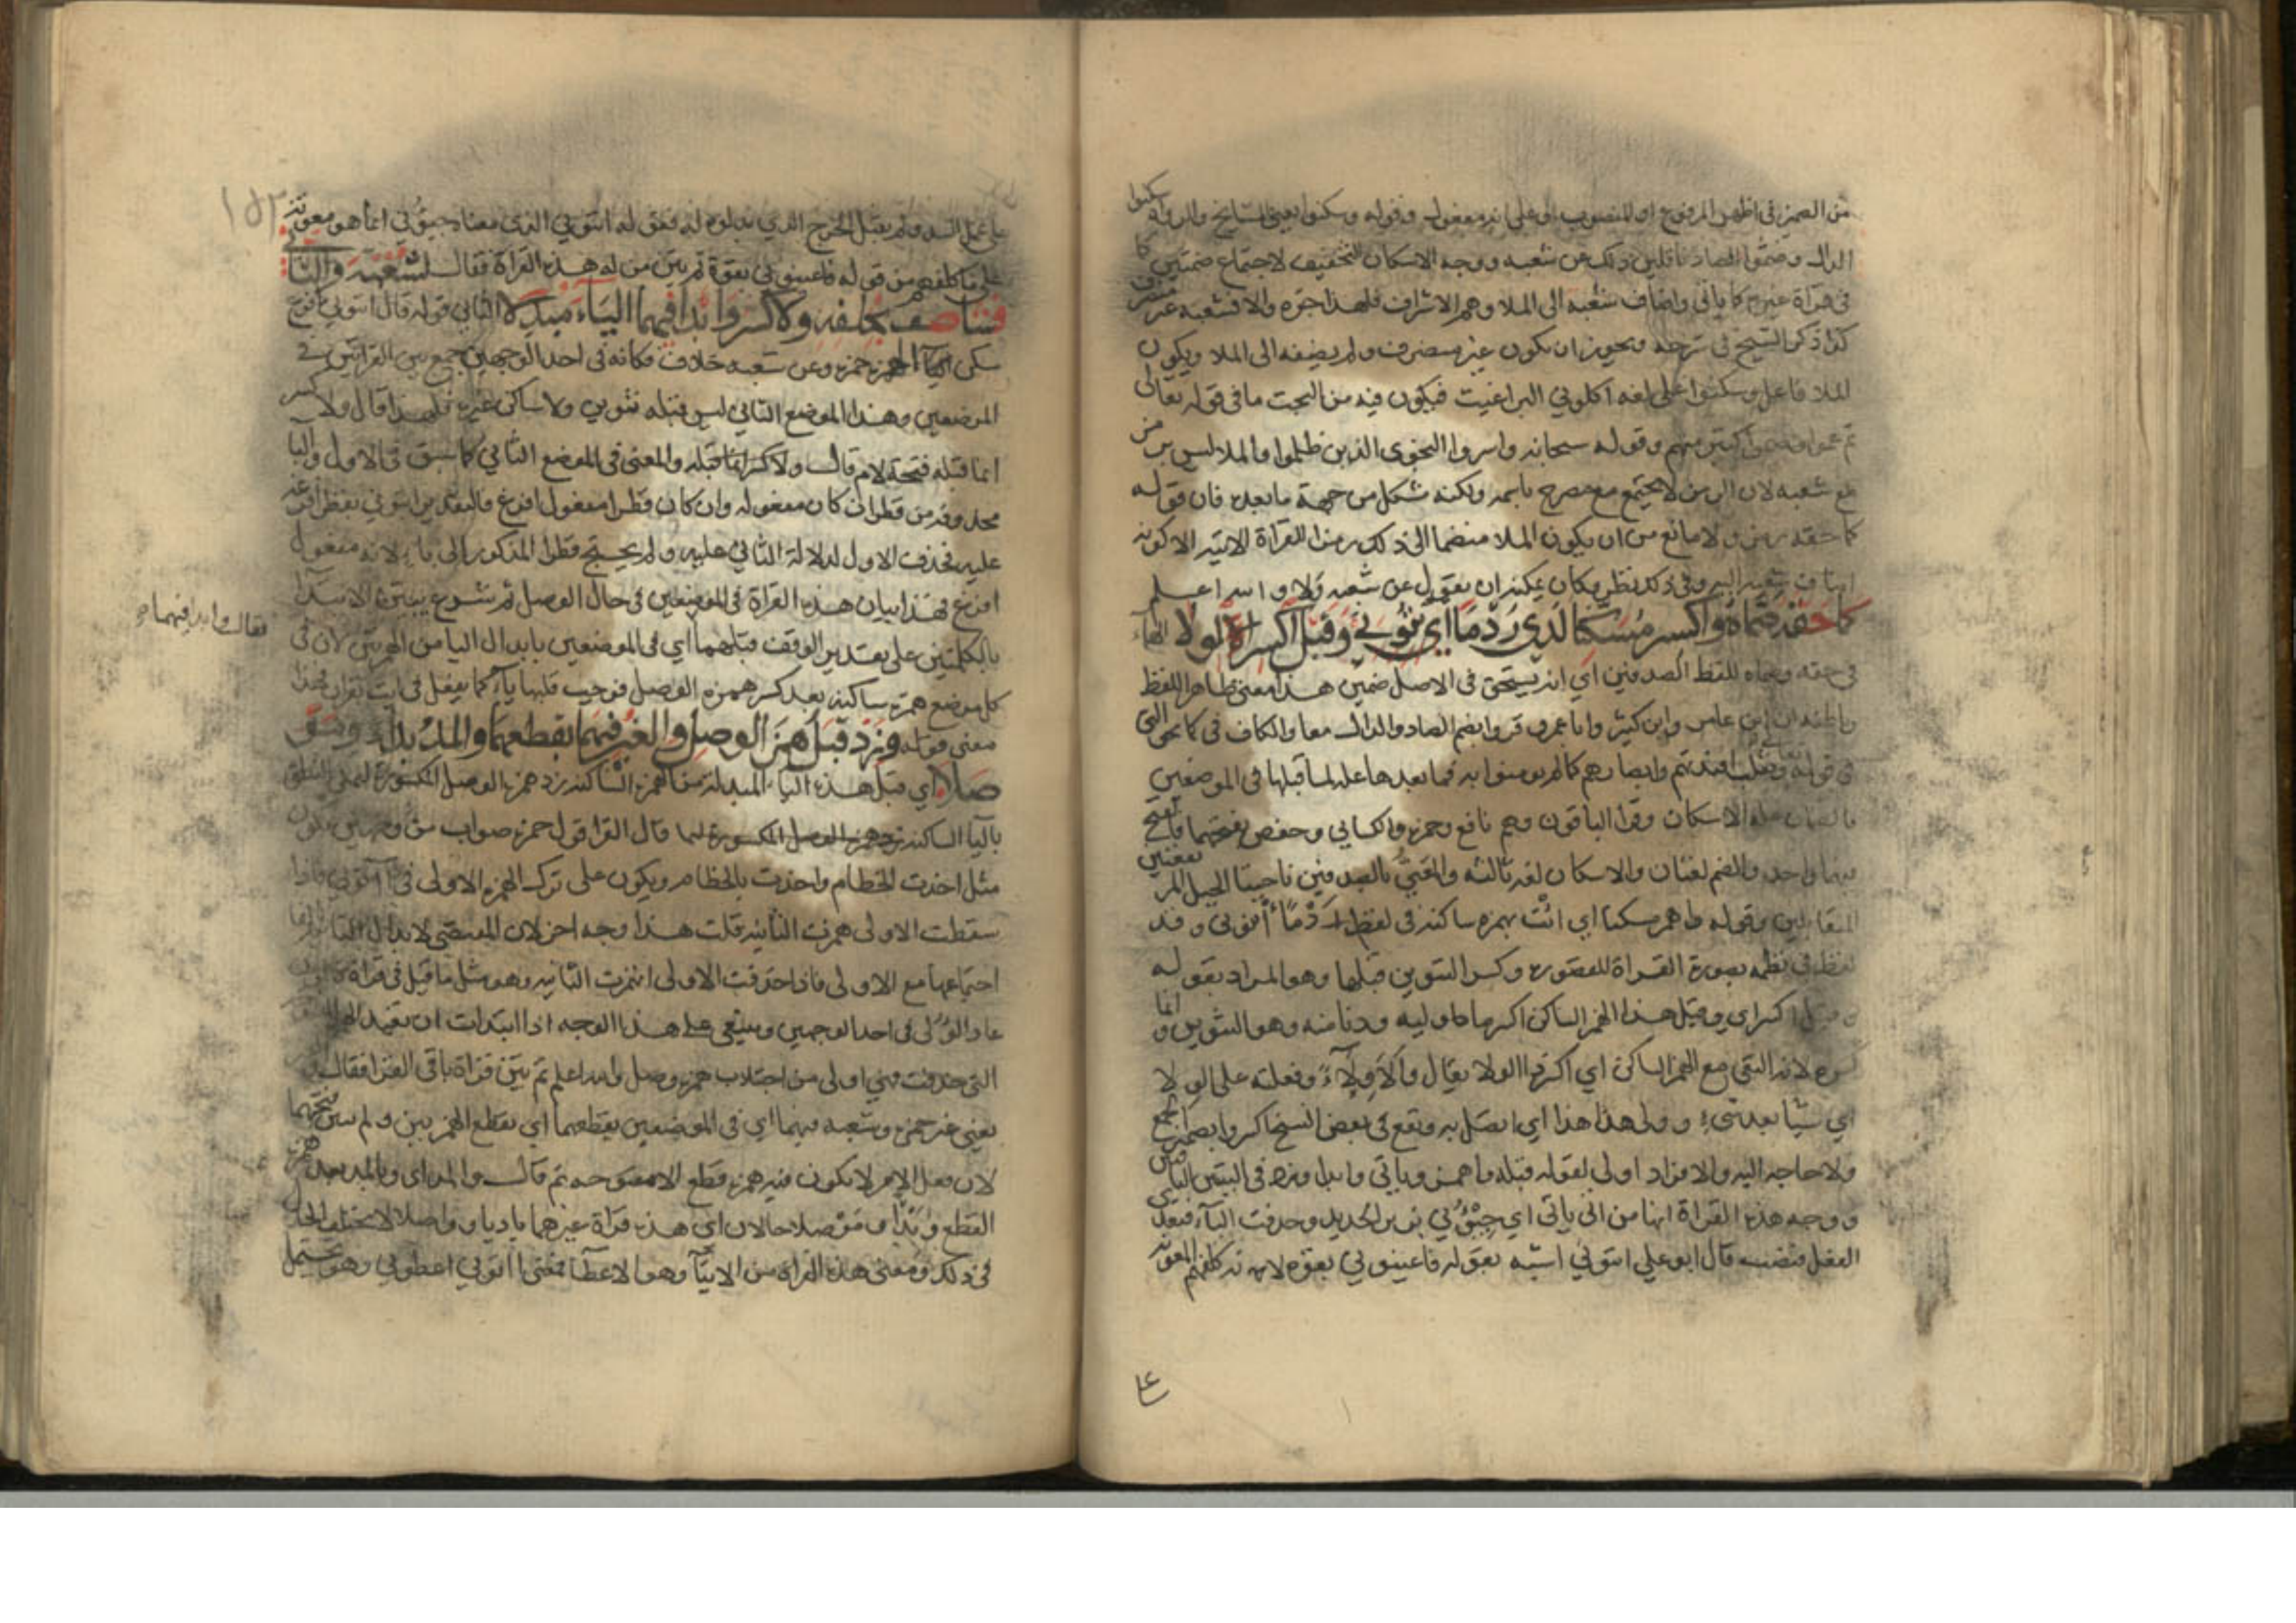 من الضمير في اظهر المرفوع او المنصوب او على انه مفعول وقوله وسكنوا يعني المشايخ والرواة سكنوا
الدال وضموا الصاد ناقلين ذلك عن شعبه ووجه الاسكان التخفيف لاجتماع ضمتين
في قراة غيره كما ياتي واضاف شعبة الى الملا وهم الاشراف فلهذا جره والا فشعبه غير منصرف
كذا ذكر الشيخ في شرحه ويجوز ان يكون غير منصرف ولم يضفه الى الملا ويكون
الملا فاعل وسكنوا على لغه اكلوني البراغيث فيكون فيه من البحث ما في قوله تعالى
ثم عموا وصموا كثير منهم وقوله سبحانه واسروا النجوى الذين ظلموا والملا ليس برمز
مع شعبه لان الرمز لا يجتمع مع مصرح باسمه ولكنه شكل من جهة ما بعده فان قوله
كما حقه رمز ولا مانع من ان يكون الملا منضما الى ذلك رمزا للقراة الاتيه الا كونه
اضاف شعبه اليه وفي ذلك نظر وكان يمكنه ان يقول عن شعبه ولا والله اعلم
كما حقه ضماه واكسر مسكنا لدى ردما ائتوني وقبل اكسر الولا الهاء
في حقه وضماه للفظ الصدفين اي انه يستحق في الاصل ضمين هذا معنى ظاهر اللفظ
وباطنه ان ابن عامر وابن كثير وابا عمرو قروا بضم الصاد والدال معا والكاف في كما نحو التي
في قوله تعالى ونقلب افئدتهم وابصارهم كما لم يومنوا به فما بعدها علة لما قبلها في الموضعين
فالضمان علة الاسكان وقرا الباقون وهم نافع وحمزه والكسائي وحفص بفتحهما فافتح
فيهما واحد والضم لغتان والاسكان لغه ثالثه والمعني بالصدفين ناحيتا الجبل المرتفعتين
المتقابلين وقوله ظاهر مسكنا اي ائت بهمزه ساكنه في لفظ ردما ائتوني وقد
لفظ في نظمه بصورة القراة المقصوره وكسر التنوين قبلها وهو المراد بقوله
وقبل اكسر اي وقبل هذا الهمز الساكن اكسرها ما وليه ودنا منه وهو التنوين وانما
كسره لانه التقى مع الهمز الساكن اي اكسر ذا الولا يقال ولاء وفعلته على الولا
اي شيا بعد شيء وولى هذا هذا اي اتصل به وقع في بعض النسخ اكسروا بضمير الجمع
ولا حاجه اليه والافراد اولى لقوله قبله وما همز وياتي وابدا وزد في البيتين
ووجه هذه القراة انها من اتى ياتي اي جيئوني بزبر الحديد وحذفت الباء فتعدى
الفعل فنصب قال ابو علي ائتوني اشبه بقوله فاعينوني بقوه لانه كلفهم المعونة
على عمل السد ولم يقبل الخرج الذي بذلوه له فقوله ائتوني الذي معناه جيئوني انما هو معونة
على ما كلفهم من قوله فاعينوني بقوة ثم بين من له هذه القراة فقال لشعبة والثاني
فشا صف بخلفه ولا كسر وابدا فيهما الياء مبدلا الثاني قوله قال ائتوني افرغ
سكن الياء الهمزه حمزه وعن شعبه خلاف فكانه في احد الوجهين جمع بين القراتين في
الموضعين وهذا الموضع الثاني ليس قبله تنوين ولا ساكن غيره فلهذا قال ولا كسر
انما قبله فتحة لام قال ولا كسر لما قبله والمعنى في الموضع الثاني كما سبق في الاول والبا
محذوفه من قطرا ان كان مفعوله وان كان قطرا مفعول افرغ فالتقدير ائتوني بقطر افرغ
عليه فحذف الاول لدلالة الثاني عليه ولم يحتج قطرا المذكور الى باء لانه مفعول
افرغ فهذا بيان هذه القراة في الموضعين في حال الوصل ثم شرع يبين الابتدا
بالكلمتين على تقدير الوقف قبلهما اي في الموضعين بابدال اليا من الهمزتين لان في
فقال وابدا فيهما
كل موضع همزة ساكنه بعد كسر همزه الوصل فوجب قلبها ياء كما يفعل في ايت بقران فهذا
معنى قوله وزد قبل همز الوصل والغير فيهما بقطعهما والمد بدءا وموصلا
اي قبل هذه الياء المبدلة من الهمزة الساكنه زد همزه الوصل المكسورة ليمكن النطق
بالياء الساكنه زد همزه الوصل المكسورة لها قال الفرا قول حمزه صواب من وجهين يكون
مثل اخذت الخطام واخذت بالخطام ويكون على ترك الهمزه الاولى في آتوني فاذا
سقطت الاولى همزت الثانيه قلت هذا وجه اخر لان المقتضي لابدال الثانيه الفا
اجتماعها مع الاولى فاذا حذفت الاولى انهمزت الثانيه وهو مثل ما قيل في قراة قالون
عاد الولى في احد الوجهين وينبغي على هذا الوجه اذا ابتدات ان تعيد الهمزه
التي حذفت فهي اولى من اجتلاب همزه وصل والله اعلم ثم بين قراة باقي القرا فقال والغير
يعني غير حمزه وشعبه فيهما اي في الموضعين بقطعهما اي بقطع الهمزتين ولم يبين فتحهما
لان فعل الامر لا يكون فيه همزه قطع الا مفتوحه ثم قال والمد اي وبالمد بعد همزه
القطع وبدءا وموصلا حالان اي هذه قراة غيرهما باديا وواصلا لا يختلف الحال
في ذلك ومعنى هذه القراة من الايتاء وهو الاعطاء فمعنى آتوني اعطوني وهو يحتمل